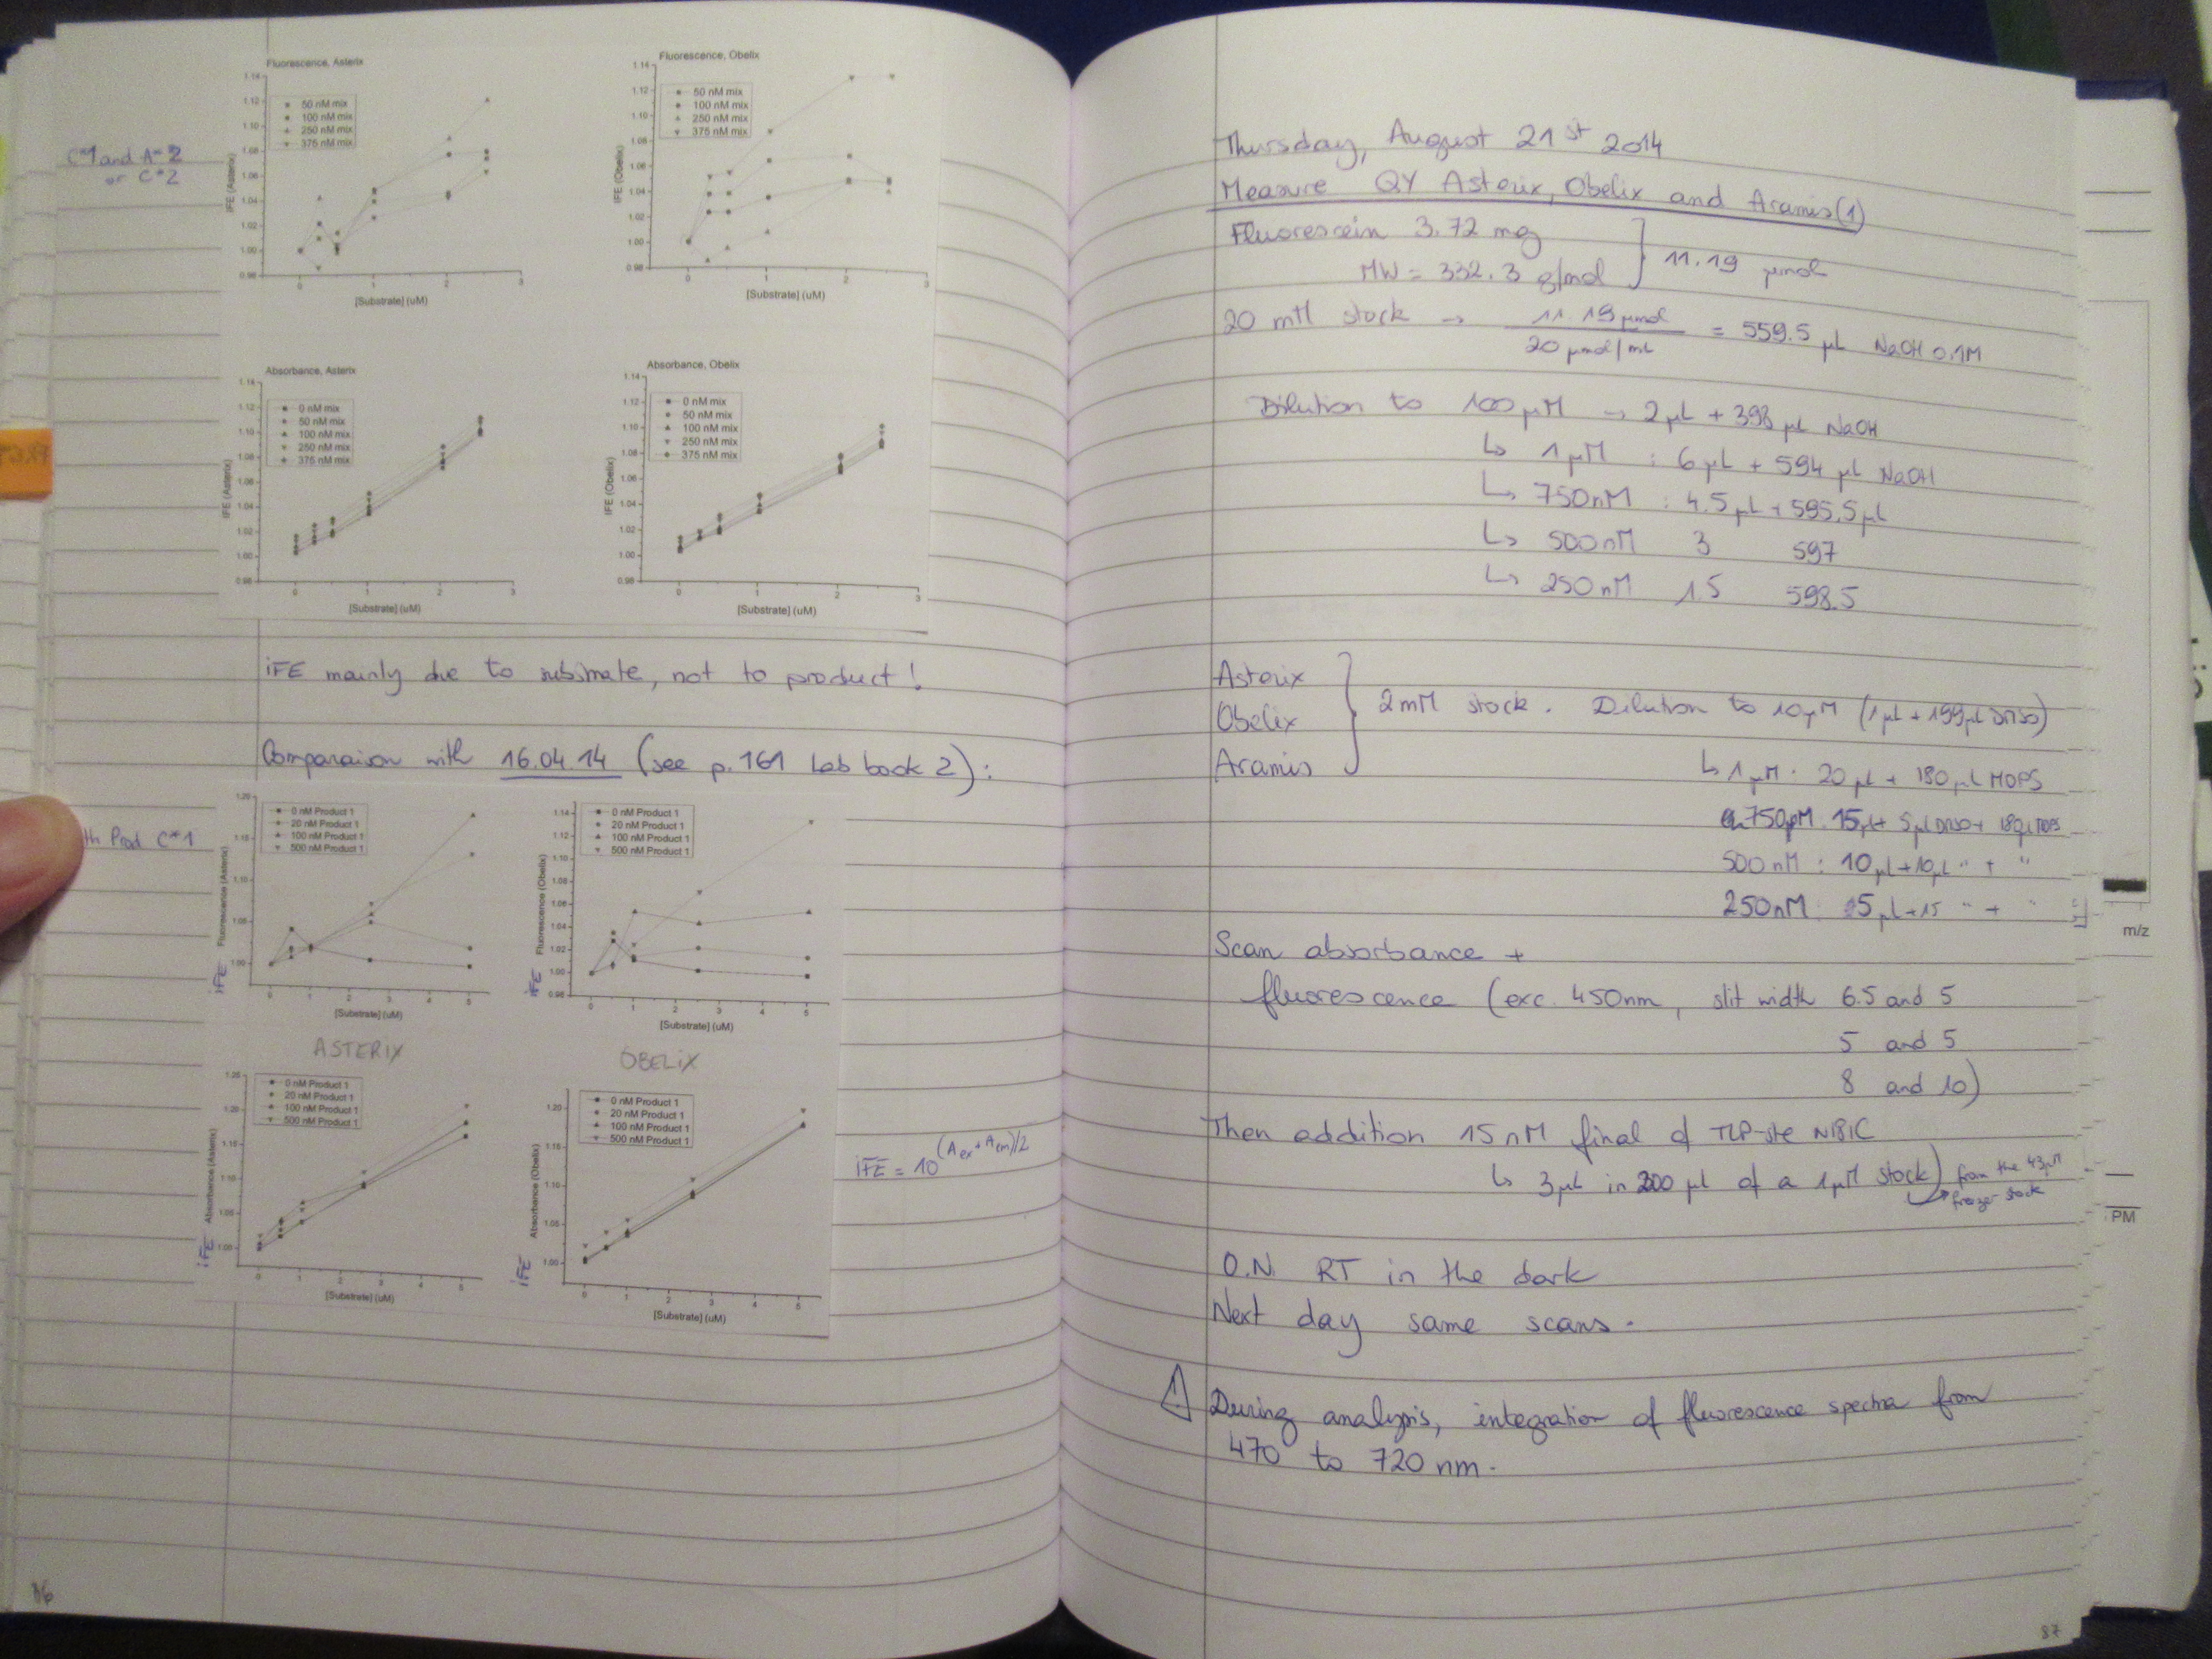 Fluorescence, Asterix
1.14
1.12
1.10
1.08
1.06
1.04
1.02
1.00
0.98
50 nM mix
100 nM mix
250 nM mix
375 nM mix
IFE (Asterix)
0 1 2 3
[Substrate] (uM)
Fluorescence, Obelix
1.14
1.12
1.10
1.08
1.06
1.04
1.02
1.00
0.98
50 nM mix
100 nM mix
250 nM mix
375 nM mix
IFE (Obelix)
0 1 2 3
[Substrate] (uM)
C*1 and A*2
or C*2
Absorbance, Asterix
1.14
1.12
1.10
1.08
1.06
1.04
1.02
1.00
0.98
0 nM mix
50 nM mix
100 nM mix
250 nM mix
375 nM mix
IFE (Asterix)
0 1 2 3
[Substrate] (uM)
Absorbance, Obelix
1.14
1.12
1.10
1.08
1.06
1.04
1.02
1.00
0.98
0 nM mix
50 nM mix
100 nM mix
250 nM mix
375 nM mix
IFE (Obelix)
0 1 2 3
[Substrate] (uM)
iFE mainly due to substrate, not to product!
Comparaison with 16.04.14 (see p.161 Lab book 2):
th Prod C*1
1.20
1.15
1.10
1.05
1.00
0 nM Product 1
20 nM Product 1
100 nM Product 1
500 nM Product 1
iFE Fluorescence (Asterix)
0 1 2 3 4 5
[Substrate] (uM)
ASTERIX
1.14
1.12
1.10
1.08
1.06
1.04
1.02
1.00
0.98
0 nM Product 1
20 nM Product 1
100 nM Product 1
500 nM Product 1
iFE Fluorescence (Obelix)
0 1 2 3 4 5
[Substrate] (uM)
OBELiX
1.25
1.20
1.15
1.10
1.05
1.00
0 nM Product 1
20 nM Product 1
100 nM Product 1
500 nM Product 1
iFE Absorbance (Asterix)
0 1 2 3 4 5
[Substrate] (uM)
1.20
1.15
1.10
1.05
1.00
0 nM Product 1
20 nM Product 1
100 nM Product 1
500 nM Product 1
iFE Absorbance (Obelix)
0 1 2 3 4 5
[Substrate] (uM)
iFE = 10^(Aex + Aem)/2
Thursday, August 21st 2014
Measure QY Asterix, Obelix and Aramis(1)
Fluorescein 3.72 mg
MW = 332.3 g/mol } 11.19 µmol
20 mM stock → 11.19 µmol / 20 µmol/mL = 559.5 µL NaOH 0.1M
Dilution to 100 µM → 2 µL + 398 µL NaOH
↳ 1 µM : 6 µL + 594 µL NaOH
↳ 750 nM : 4.5 µL + 595.5 µL
↳ 500 nM 3 597
↳ 250 nM 1.5 598.5
Asterix
Obelix } 2 mM stock. Dilution to 10 µM (1 µL + 199 µL DMSO)
Aramis
↳ 1 µM : 20 µL + 180 µL MOPS
750 M : 15 µL + 5 µL DMSO + 180 µL MOPS
500 nM : 10 µL + 10 µL " + "
250 nM : 5 µL + 15 " + "
Scan absorbance +
fluorescence (exc. 450nm, slit width 6.5 and 5
5 and 5
8 and 10)
Then addition 15 nM final of TLP-ste N181C
↳ 3 µL in 200 µL of a 1 µM stock) from the 43 µM
freezer stock
O.N. RT in the dark
Next day same scans.
⚠ During analysis, integration of fluorescence spectra from
470 to 720 nm.
m/z
PM
86
87